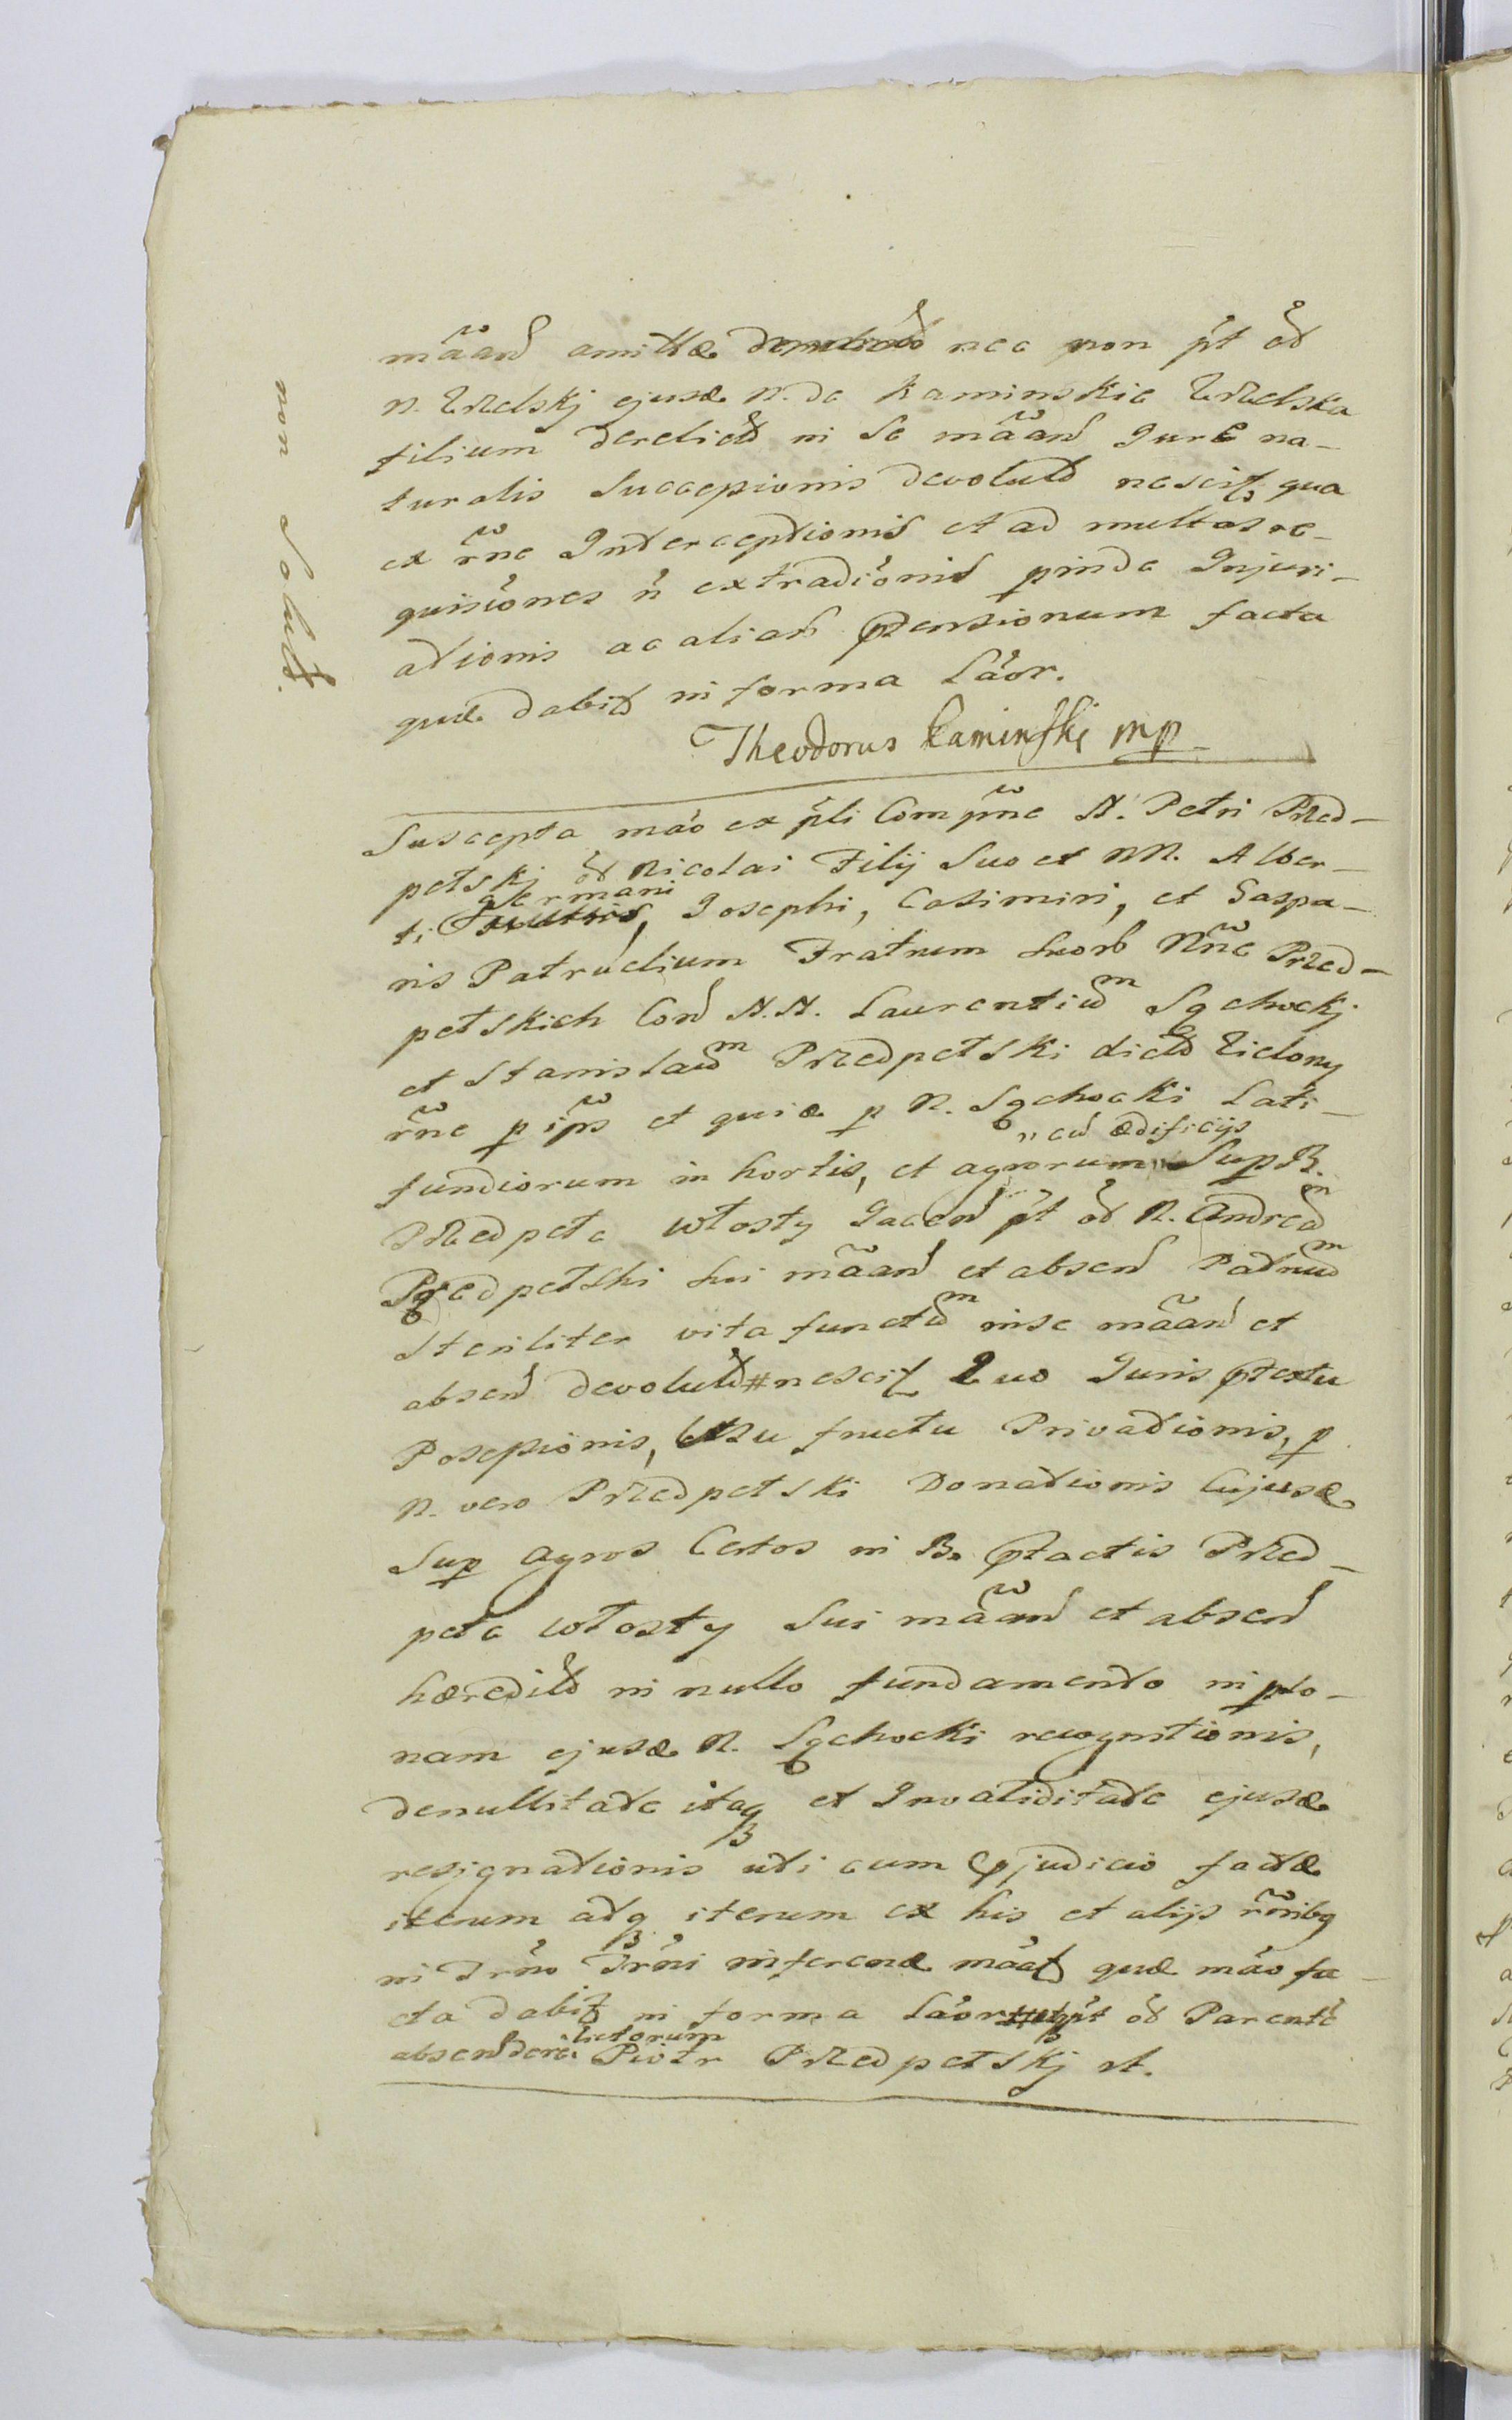 mãand amittæ nec non p̃t et
N. Wrzelskj ejusd. N. de Kaminskie Wrzelska
filium derelictt in Se mãand Jure na-
turalis Successionis devolutt nescit, qua
ex rñe Interceptionis et ad multas re-
quisiones ñ extraditionis pinde Injuri-
ationis ac aliarb prensionum facta
quæ dabitt in forma Láor.
Theodorus Kaminski mp
non Solutt.
Suscepta mão ex p̃li Comp̃ne N. Petri Przed-
petskj et Nicolai Filij Suo et NN. Alber-
ti Germani, Josephi, Casimiri, et Gaspa-
ris Patruelium Fratrum Suorb Nñe Przed-
petskich Con N.N. Laurentium Sąchockj
et Stanislaum Przedpetski dictt Zielony
rñe p ips et quia p N. Sąchocki Lati-
fundiorum in hortis, et agrorum "cu ædificijs" Sup B.
Przedpete włosty Jacen p̃t et N. Andream
Przedpetski Sui mãand et absen Patruum
Steriliter vita functum inse mãand et
absen devolutt # nescit Quo Juris prtextu
Possessionis, Usu fructu Privationis, p
N. vero Przedpetski Donationis Cujusd.
Sup agros Certos in B. prtactis Przed-
pete włosty Sui mãand et absen
hæreditt in nullo fundamento in pso-
nam ejusd. N. Sąchocki recognitionis,
denullitate itaq et Invaliditate ejusd.
resignationis uti cum prjudicio factæ
iterum atq iterum ex his et alijs rõnibq
in Trñο Trñi inferend mãat quæ mão fa-
cta dabitt in forma Láor # p̃t et Parente
absen derelictorum Piotr Przedpetskj rt.